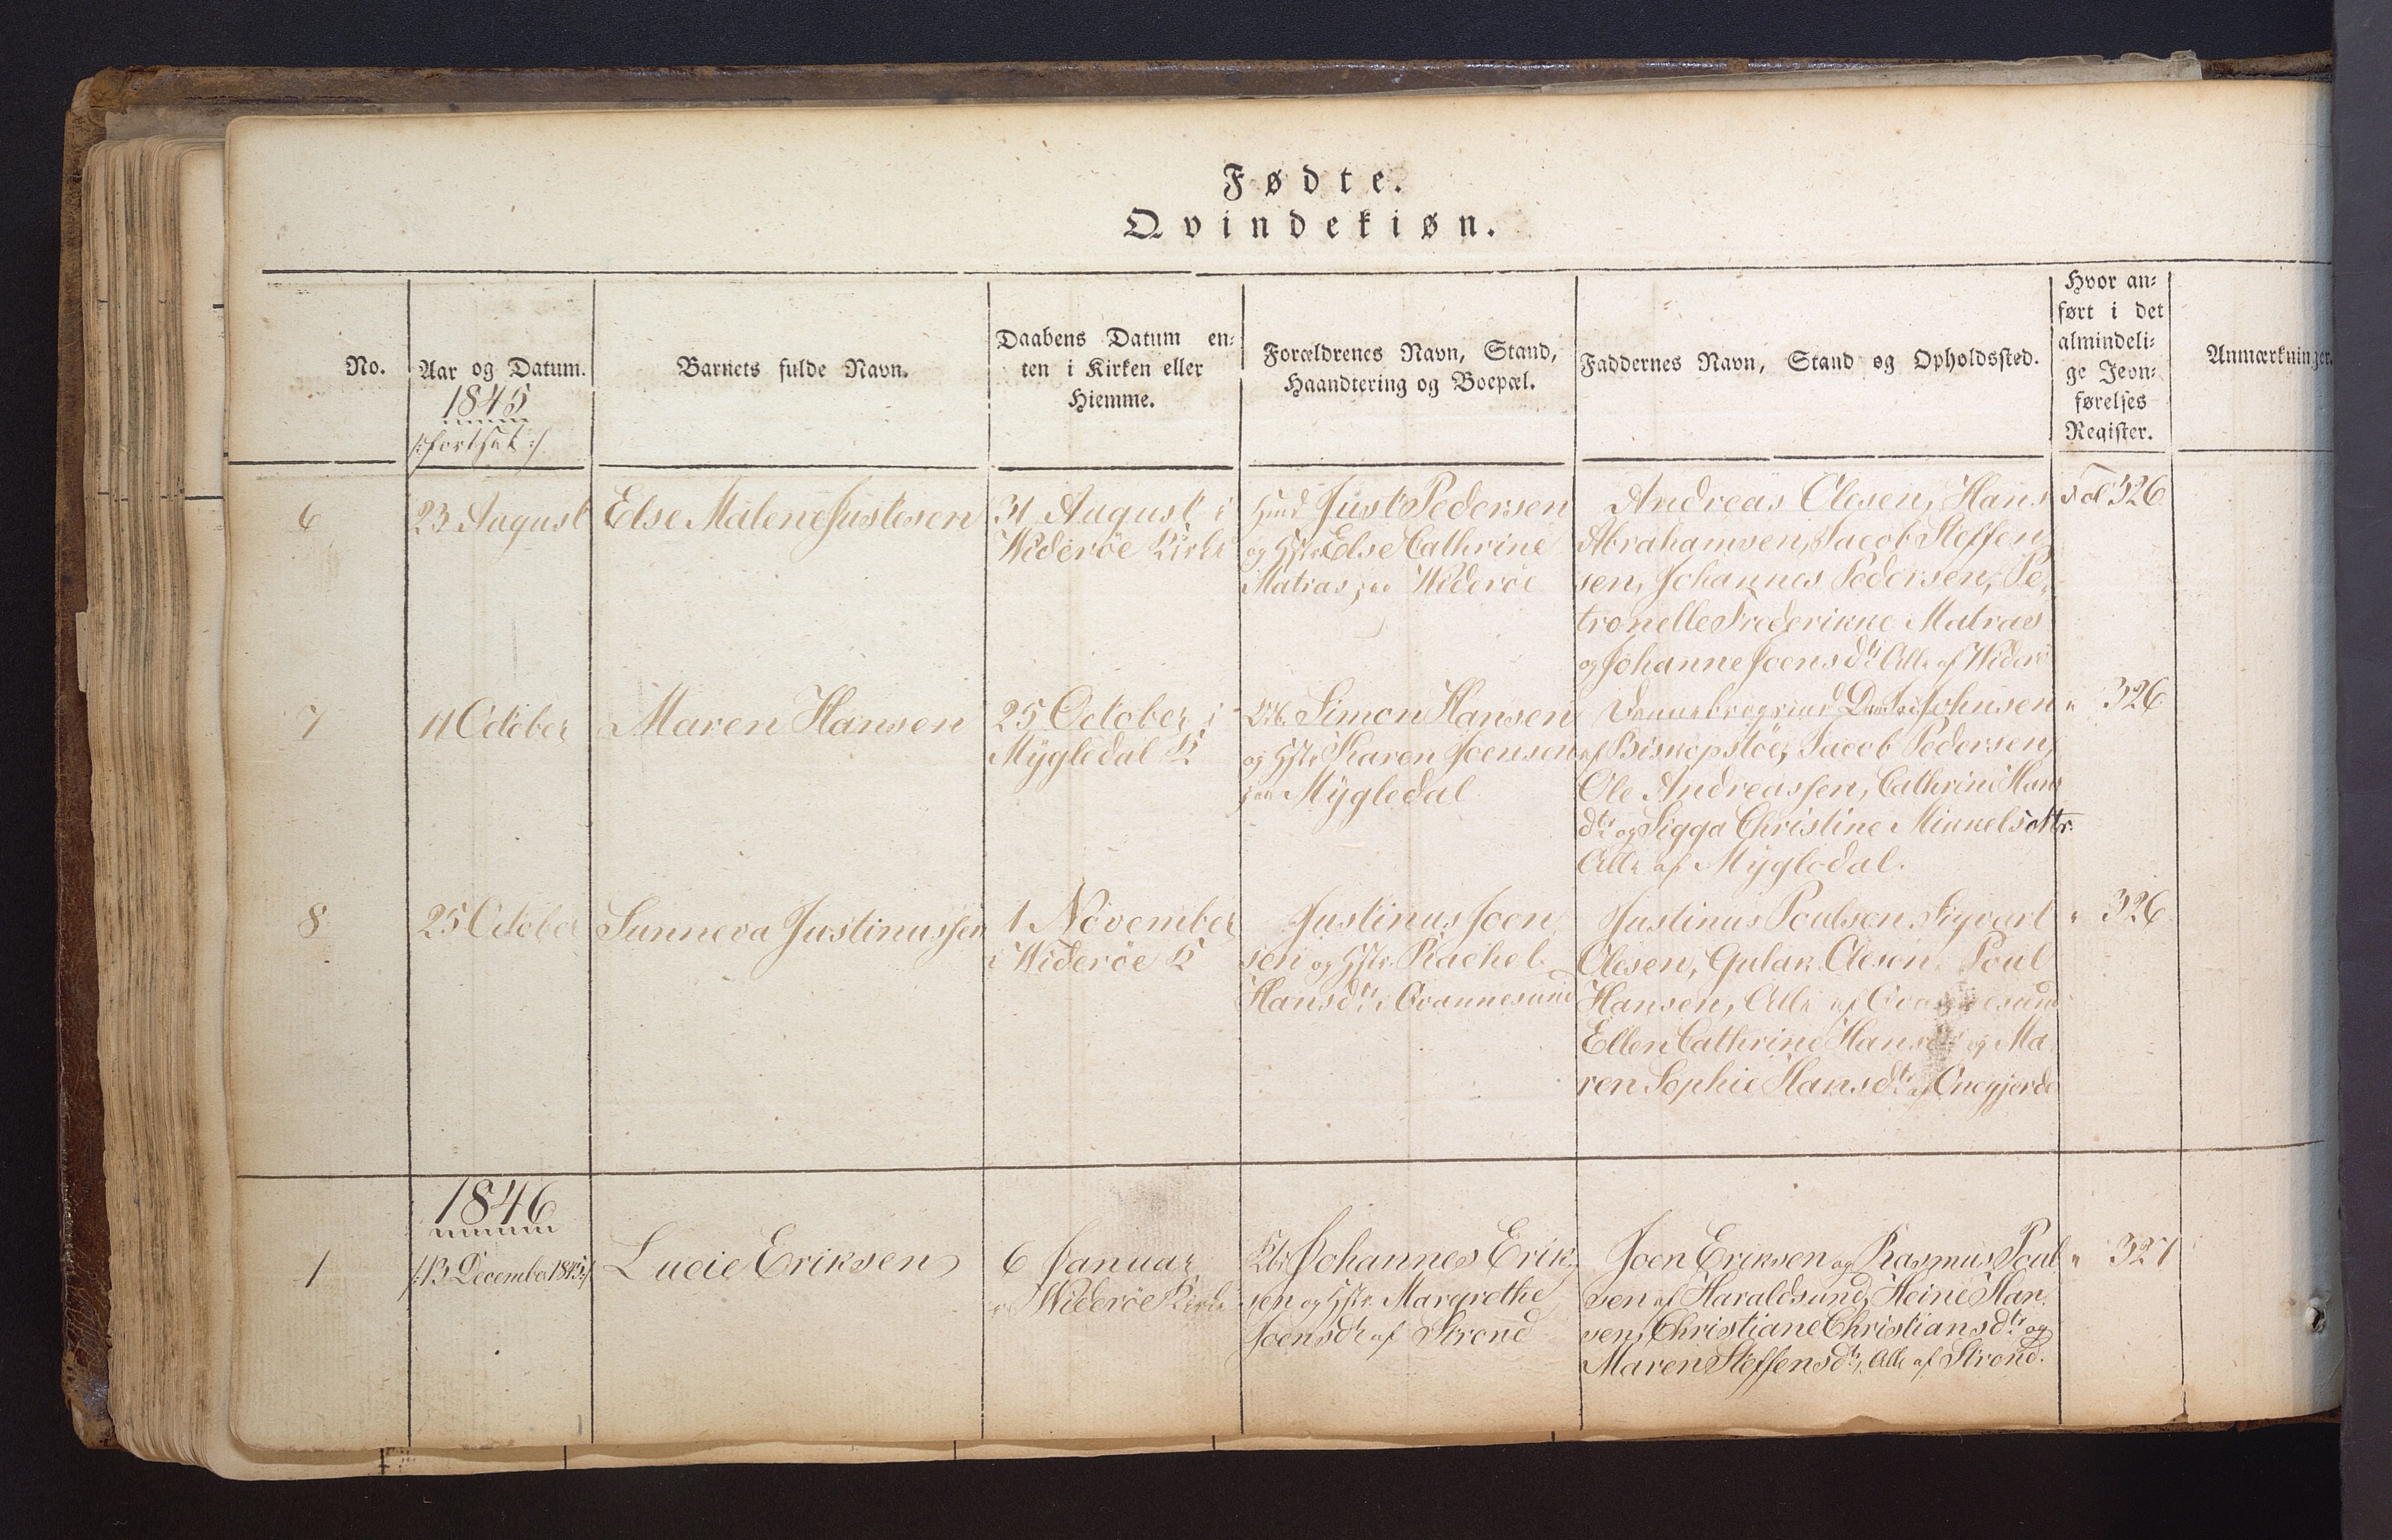 Fødte.
Qvindekiøn.
No.
Aar og Datum.
1845
/: fortsat :/
Barnets fulde Navn.
Daabens Datum en-
ten i Kirken eller
Hiemme.
Forældrenes Navn, Stand,
Haandtering og Boepæl.
Faddernes Navn, Stand og Opholdssted.
Hvor an-
ført i det
almindeli-
ge Jevn-
førelses
Register.
Anmærkninger.
6
23 August
Else Malene Justesen
31 August i
Widerøe Kirke
Just Pedersen
og Hstr Else Cathrine
Matras, paa Widerøe
Andreas Olesen, Hans
Abrahamsen, Jacob Steffen-
sen, Johannes Pedersen, Pe-
tronelle Frederikke Matras
og Johanne Joensdtr Alle af Widerø
Fol 326
7
11 October
Maren Hansen
25 October i
Mygledal K
Simon Hansen
og Hstr Karen Joensen
paa Mygledal
Dannebrogsmd Johnsen
af Biskopstøe, Jacob Pedersen,
Ole Andreassen, Cathrine Hans
dtr og Sigga Christine Mikkelsdttr.
Alle af Mygledal.
" 326
8
25 October
Sunneva Justinussen
1 November
i Widerøe K
Justinus Joen
sen og Hstr. Rachel
Hansdtr, Qvannesund
Justinus Poulsen, Sigvart
Olesen, Gulak Olesen, Poul
Hansen, Alle af Qvannesund
Ellen Cathrine Hansdtr og Ma
ren Sophie Hansdtr af Onegjerde
" 326
1846
1
/:13 December 1845:/
Lucie Eriksen
6 Januar
i Widerøe Kirke
Johannes Erik-
sen og Hstr. Margrethe
Joensdtr af Strond
Joen Eriksen og Rasmus Poul
sen af Haraldsund, Heine Han
sen, Christiane Christiansdtr og
Maren Steffensdtr, Alle af Strond.
" 327